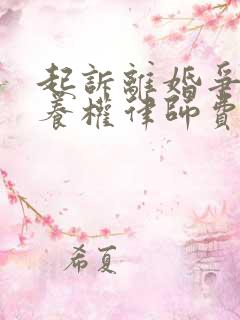 起訴離婚爭
養權律師費
希夏